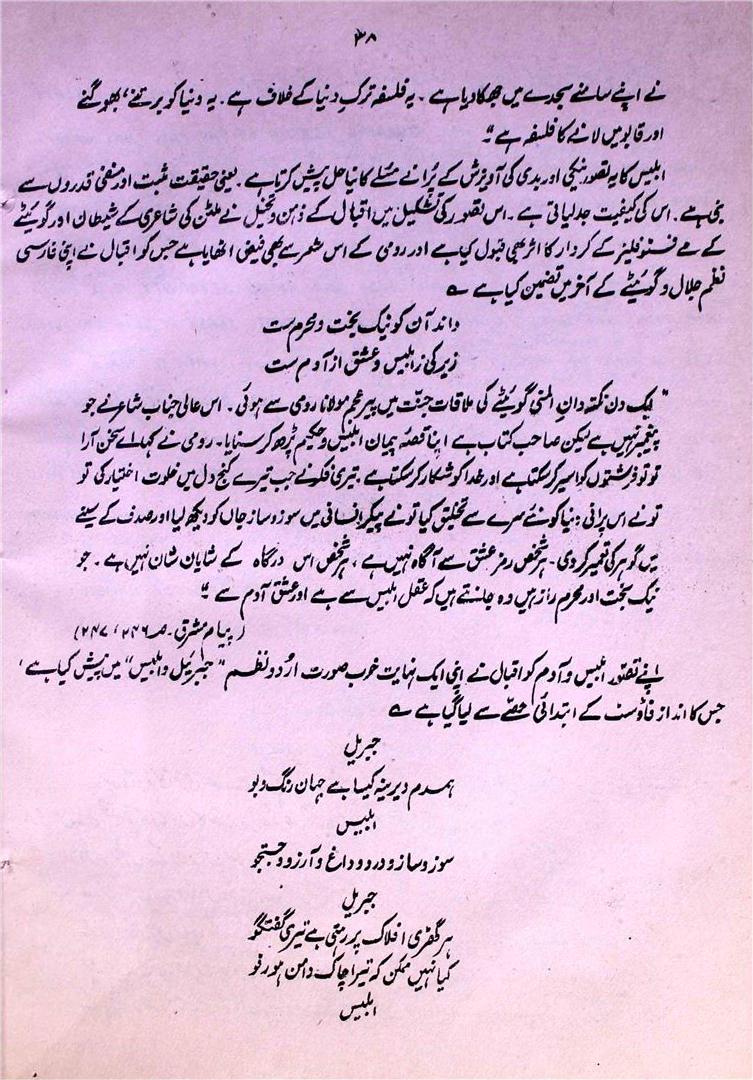 ۳۸
نے اپنے سامنے سجدے میں جھکا دیا ہے۔ یہ فلسفہ ترکِ دنیا کے خلاف ہے۔ یہ دنیا کو برتنے، بھوگنے
اور قابو میں لانے کا فلسفہ ہے"
ابلیس کا یہ تصور نیکی اور بدی کی آویزش کے پرانے مسئلے کا نیا حل پیش کرتا ہے۔ یعنی حقیقت مثبت اور منفی قدروں سے
بنی ہے۔ اس کی کیفیت جدلیاتی ہے۔ اس تصور کی تشکیل میں اقبال کے ذہن و تخیل نے ملٹن کی شاعری کے شیطان اور گوئٹے
کے مے فسٹوفلیز کے کردار کا اثر بھی قبول کیا ہے اور رومی کے اس شعر سے بھی فیض اٹھایا ہے جس کو اقبال نے اپنی فارسی
نظم جلال و گوئٹے کے آخر میں تضمین کیا ہے ؎
داند آں کو نیک بخت و محرم ست
زیرکی ز ابلیس و عشق از آدم ست
"ایک دن نکتہ دانِ المنی گوئیٹے کی ملاقات جنت میں پیر عجم مولانا رومی سے ہوئی۔ اس عالی جناب شاعر نے جو
پیغمبر نہیں ہے لیکن صاحب کتاب ہے اپنا قصۂ پیمان ابلیس و حکیم پڑھ کر سنایا۔ رومی نے کہا اے سخن آرا
تو تو فرشتوں کو اسیر کر سکتا ہے اور خدا کو شکار کر سکتا ہے۔ تیری فکر نے جب تیرے کنج دل میں خلوت اختیار کی تو
تو نے اس پرانی دنیا کو نئے سرے سے تخلیق کیا تو نے پیکر انسانی میں سوز و ساز جاں کو دیکھ لیا اور صدف کے سینے
میں گوہر کی تعمیر کر دی۔ ہر شخص رمز عشق سے آگاہ نہیں ہے، ہر شخص اس درگاہ کے شایان شان نہیں ہے۔ جو
نیک بخت اور محرم راز ہیں وہ جانتے ہیں کہ عقل ابلیس سے ہے اور عشق آدم سے"
(پیام مشرق۔ ص ۲۴۶، ۲۴۷)
اپنے تصور ابلیس و آدم کو اقبال نے اپنی ایک نہایت خوب صورت اردو نظم "جبرئیل و ابلیس" میں پیش کیا ہے،
جس کا انداز فاؤسٹ کے ابتدائی حصے سے لیا گیا ہے ؎
جبریل
ہمدم دیرینہ کیسا ہے جہان رنگ و بو
ابلیس
سوز و ساز و درد و داغ و آرزو و جستجو
جبریل
ہر گھڑی افلاک پر رہتی ہے تیری گفتگو
کیا نہیں ممکن کہ تیرا چاک دامن ہو رفو
ابلیس